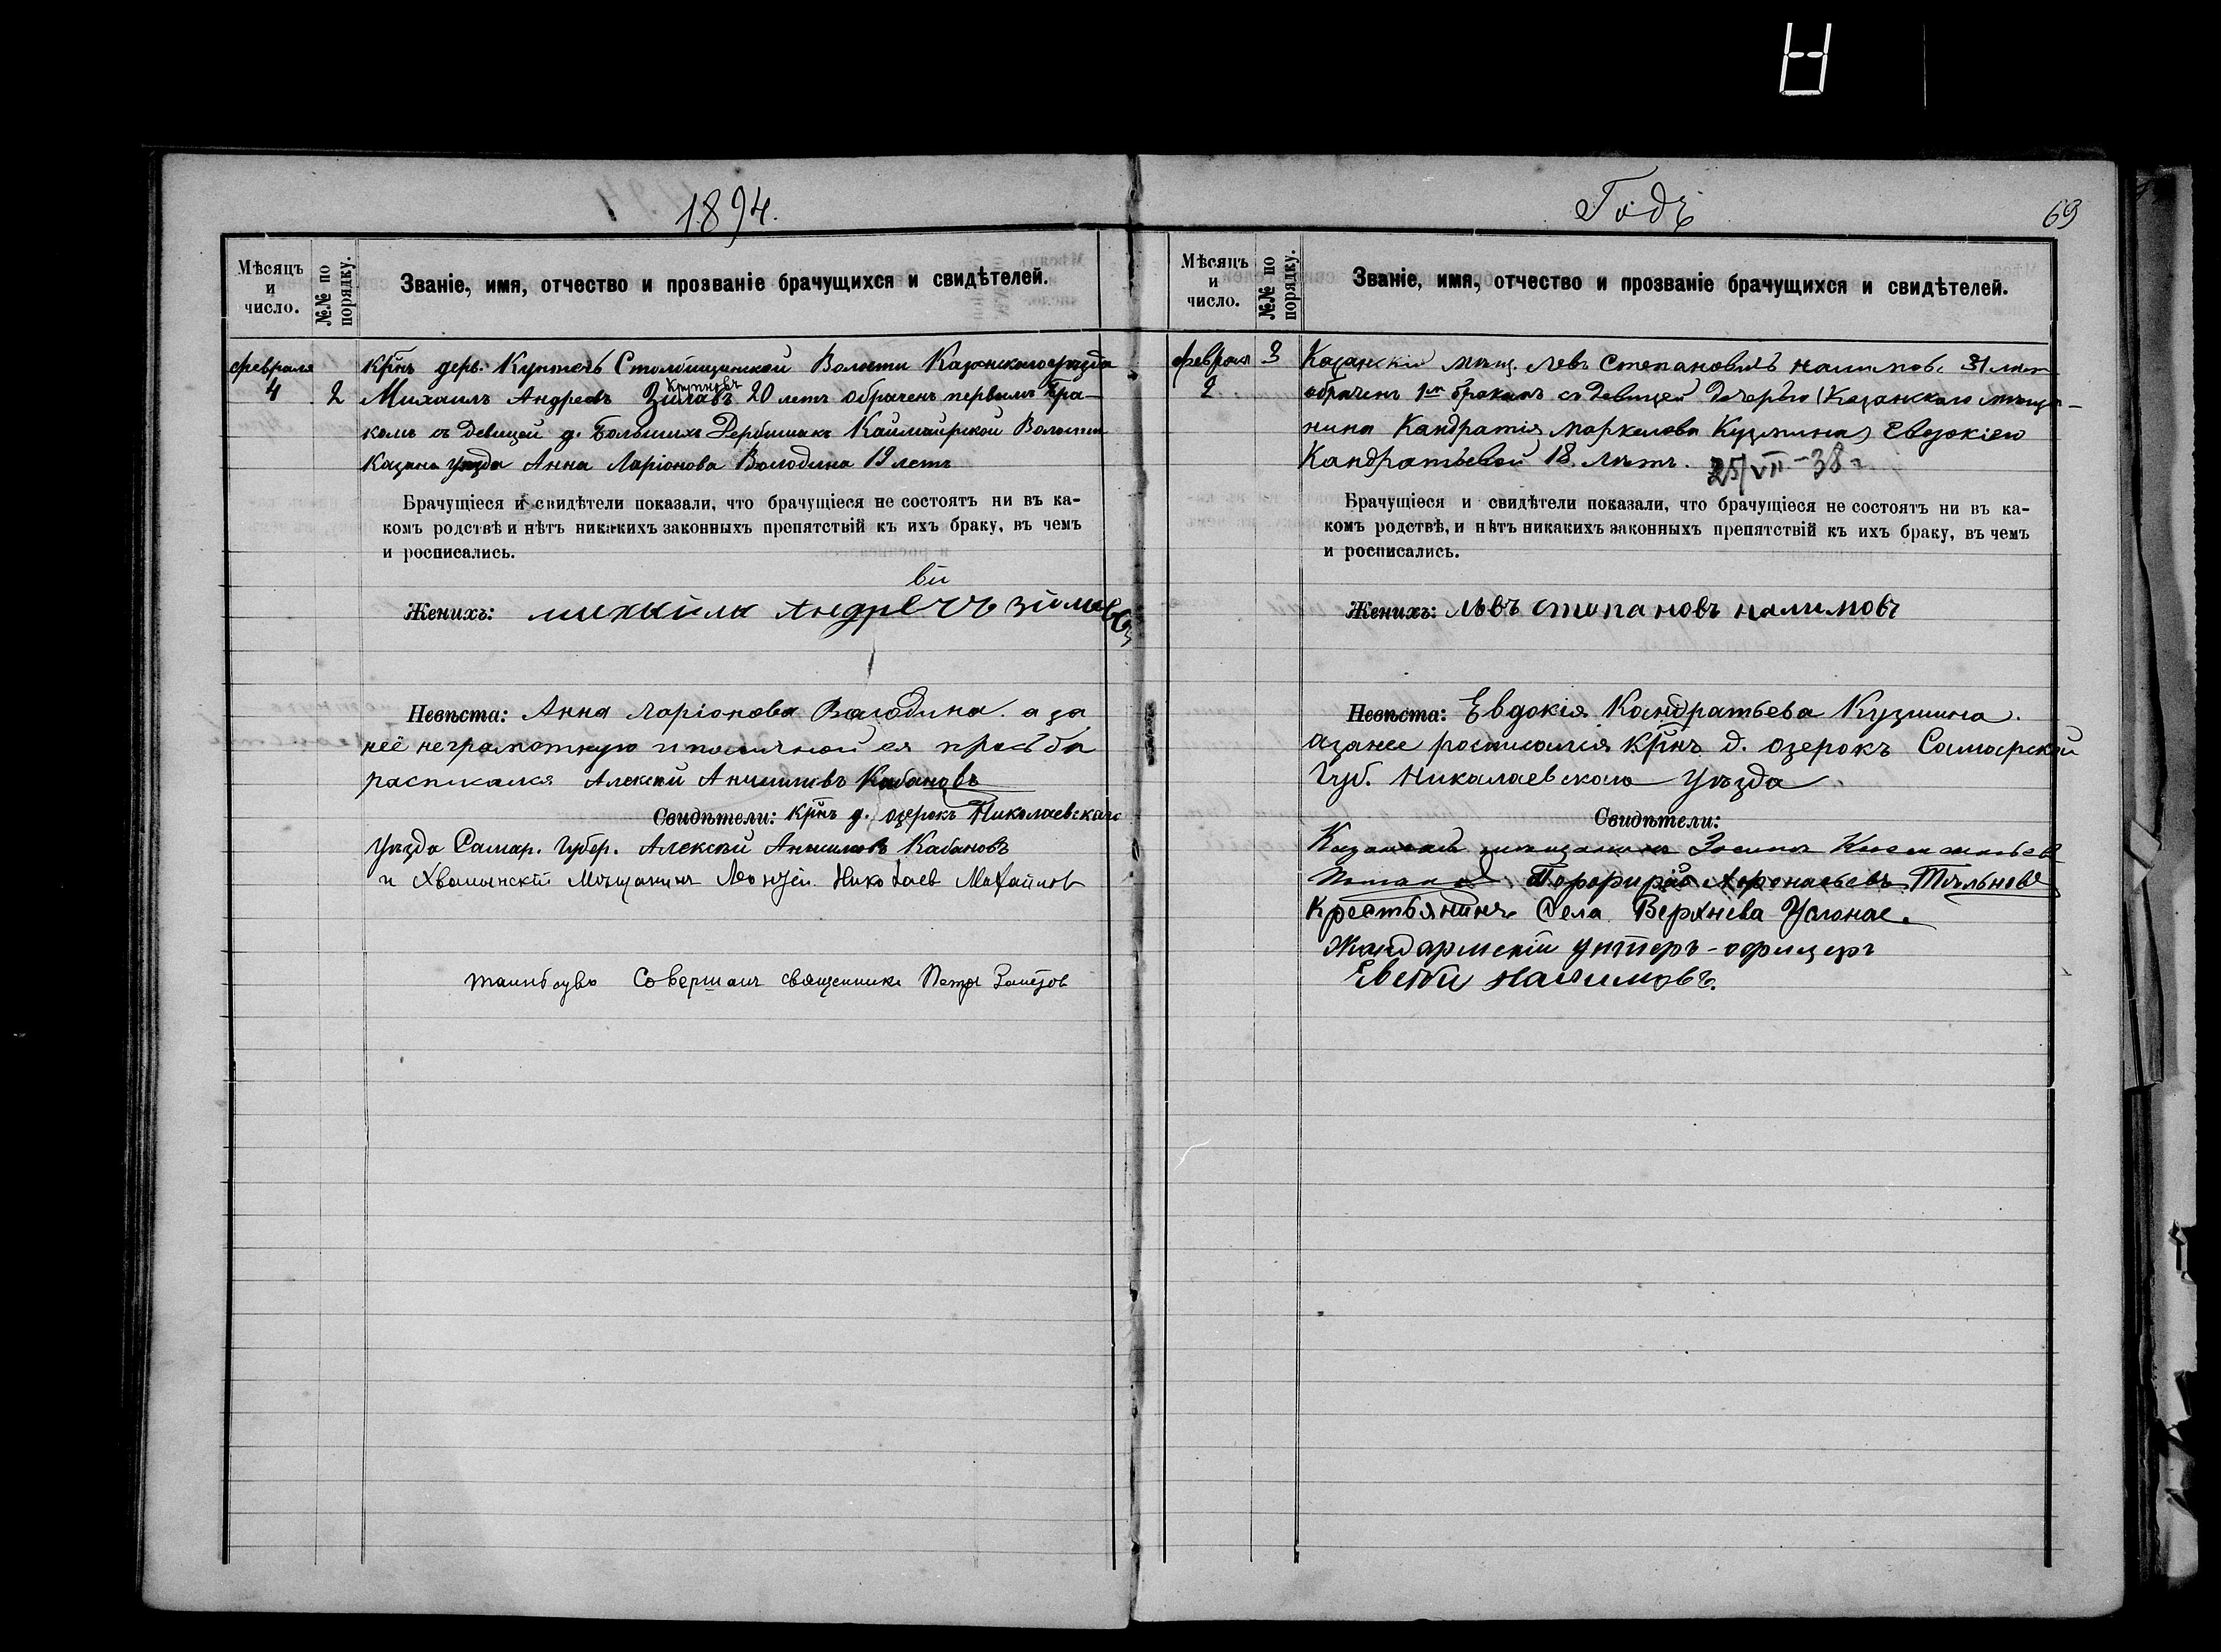 1894.
Мѣсяцъ и число.
№.№ по порядку.
Званіе, имя, отчество и прозваніе брачущихся и свидѣтелей.
февраля
4
2
Крнъ дерв. Столбищинской Волости Казанского уѣзда
Крупновъ
Михаилъ Андреевъ Зилавъ 20 летъ обраченъ первымъ бра-
комъ съ девицей д. Большихъ Дербишакъ Каймайрской Волости
Казана уѣзда Анна Ларіонова Володина 19 летъ
Брачущіеся и свидѣтели показали, что брачущіеся не состоятъ ни въ ка-
комъ родствѣ и нѣтъ никакихъ законныхъ препятствій къ ихъ браку, въ чемъ
и росписались.
Женихъ: михаила
Невѣста: Анна Ларіонова Валодина. а за
неё неграмотную и поличной ея прозьба
расписался Алексѣй Кабановъ
Свидѣтели: Крнъ д. озерокъ Николаевскаго
Уѣзда Самар. Губер. Алексѣй Кабановъ
и Хвалынскій Мѣщанинъ Николаев Михайлов
Совершалъ священникъ Петръ
Годъ
69
Мѣсяцъ и число.
№.№ по порядку.
Званіе, имя, отчество и прозваніе брачущихся и свидѣтелей.
февраля
2
3
Казанскій мѣщ. Левъ Степановичъ Налимовъ 31 лѣт
обраченъ 1м бракомъ съ девицей дочерью (Казанскаго мѣща-
нина Кандратія Маркелова Кузмина) Евдокіею
Кандратьевой 18. лѣтъ. 25/VII-38 г.
Брачущіеся и свидѣтели показали, что брачущіеся не состоятъ ни въ ка-
комъ родствѣ, и нѣтъ никакихъ законныхъ препятствій къ ихъ браку, въ чемъ
и росписались.
Женихъ: лѣвъ степановъ налимовъ
Невѣста: Евдокія Кандратьева Кузмина.
азанее росписался крнъ д. озерокъ Самарской
Губ. Николаевского уѣзда
Свидѣтели:
Порфирій Афонасьевъ
Крестьянинъ Села Верхнева Услонае.
Жандармскій унтеръ-офицеръ
Налимовъ.